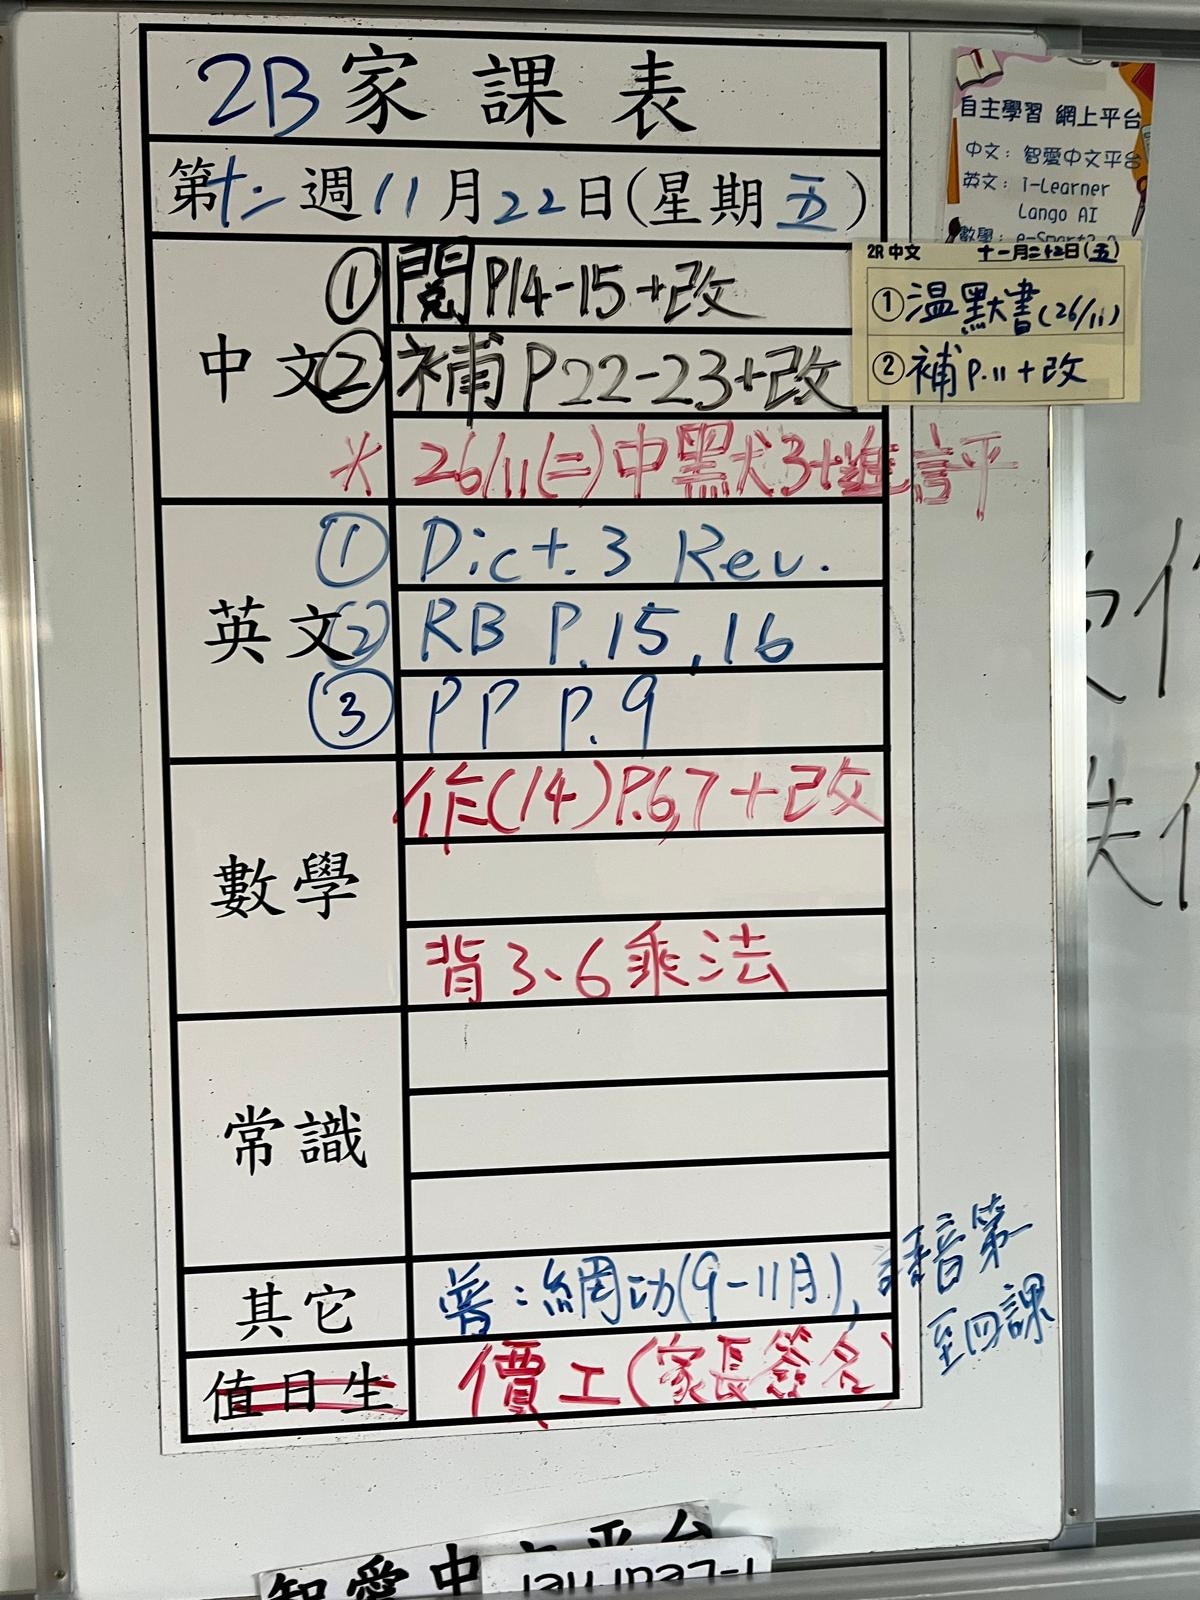 2B家課表
第十二週11月22日(星期五)
中文
①閱P14-15+改
②補P22-23+改
*26/11(二)中默3+進評
英文
①Dict.3 Rev.
②RB P.15,16
③PP P.9
數學
作(14)P.6,7+改
背3、6乘法
常識
其它
普:網功(9-11月),語音第一至四課
值日生
價工(家長簽名)
自主學習 網上平台
中文:智愛中文平台
英文:i-Learner
Lango AI
數學:e-Smart
2R中文 十一月二十二日(五)
①温默書(26/11)
②補P.11+改
智愛中文平台
i-Learner